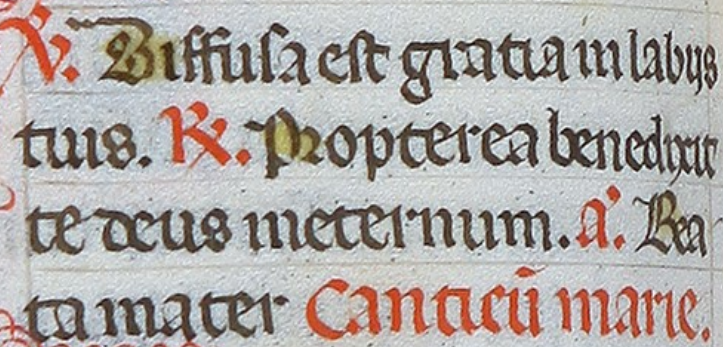 ℣. Diffusa est gratia in labijs
tuis. ℟. Propterea benedixit
te deus ineternum. a᷒. Bea
ta mater Canticū marie.